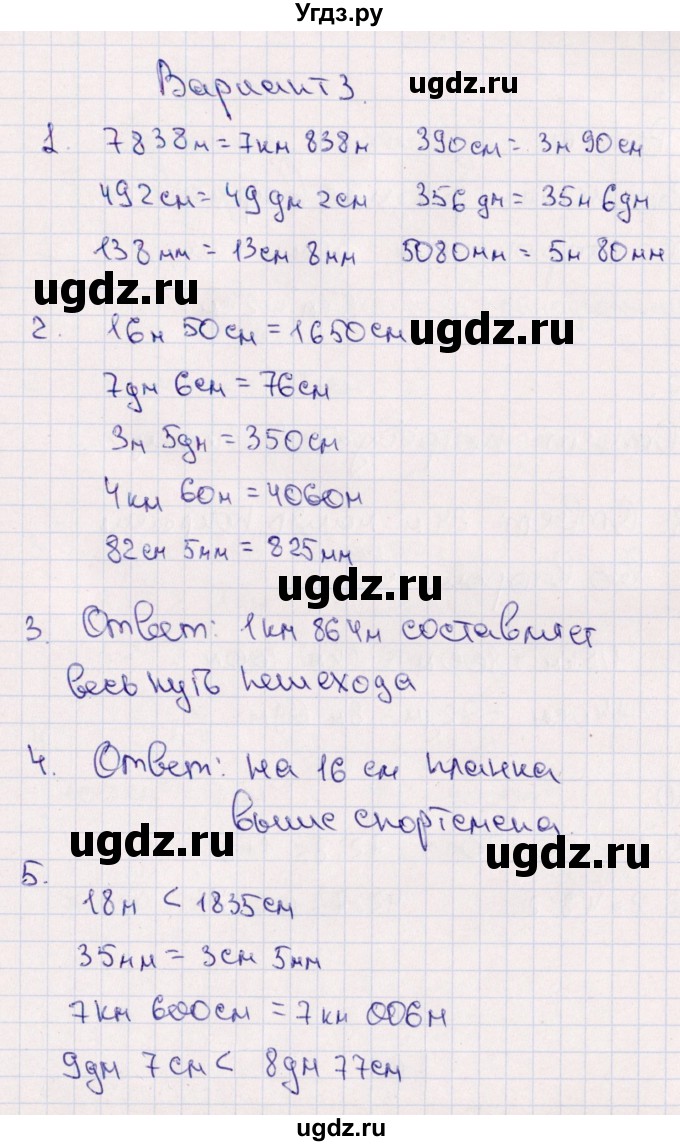 Угдз.ру
Вариант 3. ugdz.ru
1. 7838м = 7км 838м 390см = 3м 90см
492см = 49дм 2см 356дм = 35м 6дм
138мм = 13см 8мм 5080мм = 5м 80мм
ugdz.ru
2. 16м 50см = 1650см ugdz.ru
7дм 6см = 76см
3м 5дм = 350см
4км 60м = 4060м
82см 5мм = 825мм
ugdz.ru
3. Ответ: 1км 864м составляет
весь путь пешехода
4. Ответ: на 16 см планка
выше спортсмена.
ugdz.ru ugdz.ru
5.
18м < 1835см
35мм = 3см 5мм
7км 600см = 7км 006м
9дм 7см < 8дм 77см
ugdz.ru